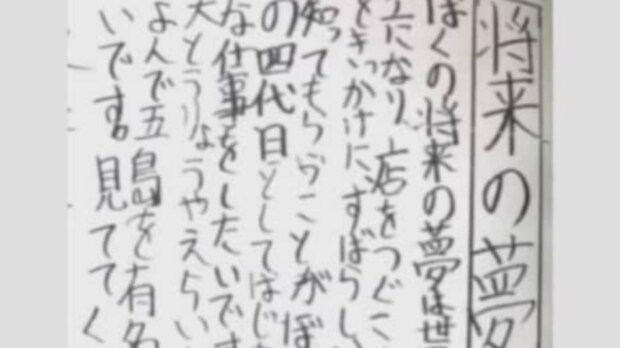 将来の夢
ぼくの将来の夢は世
になり、店をつぐこ
をきっかけに、すばらし
知ってもらうことがぼ
の四代目としてはじ
な仕事をしたいです
大とうりょうやえらい
よんで五島を有名
いです。見ててく